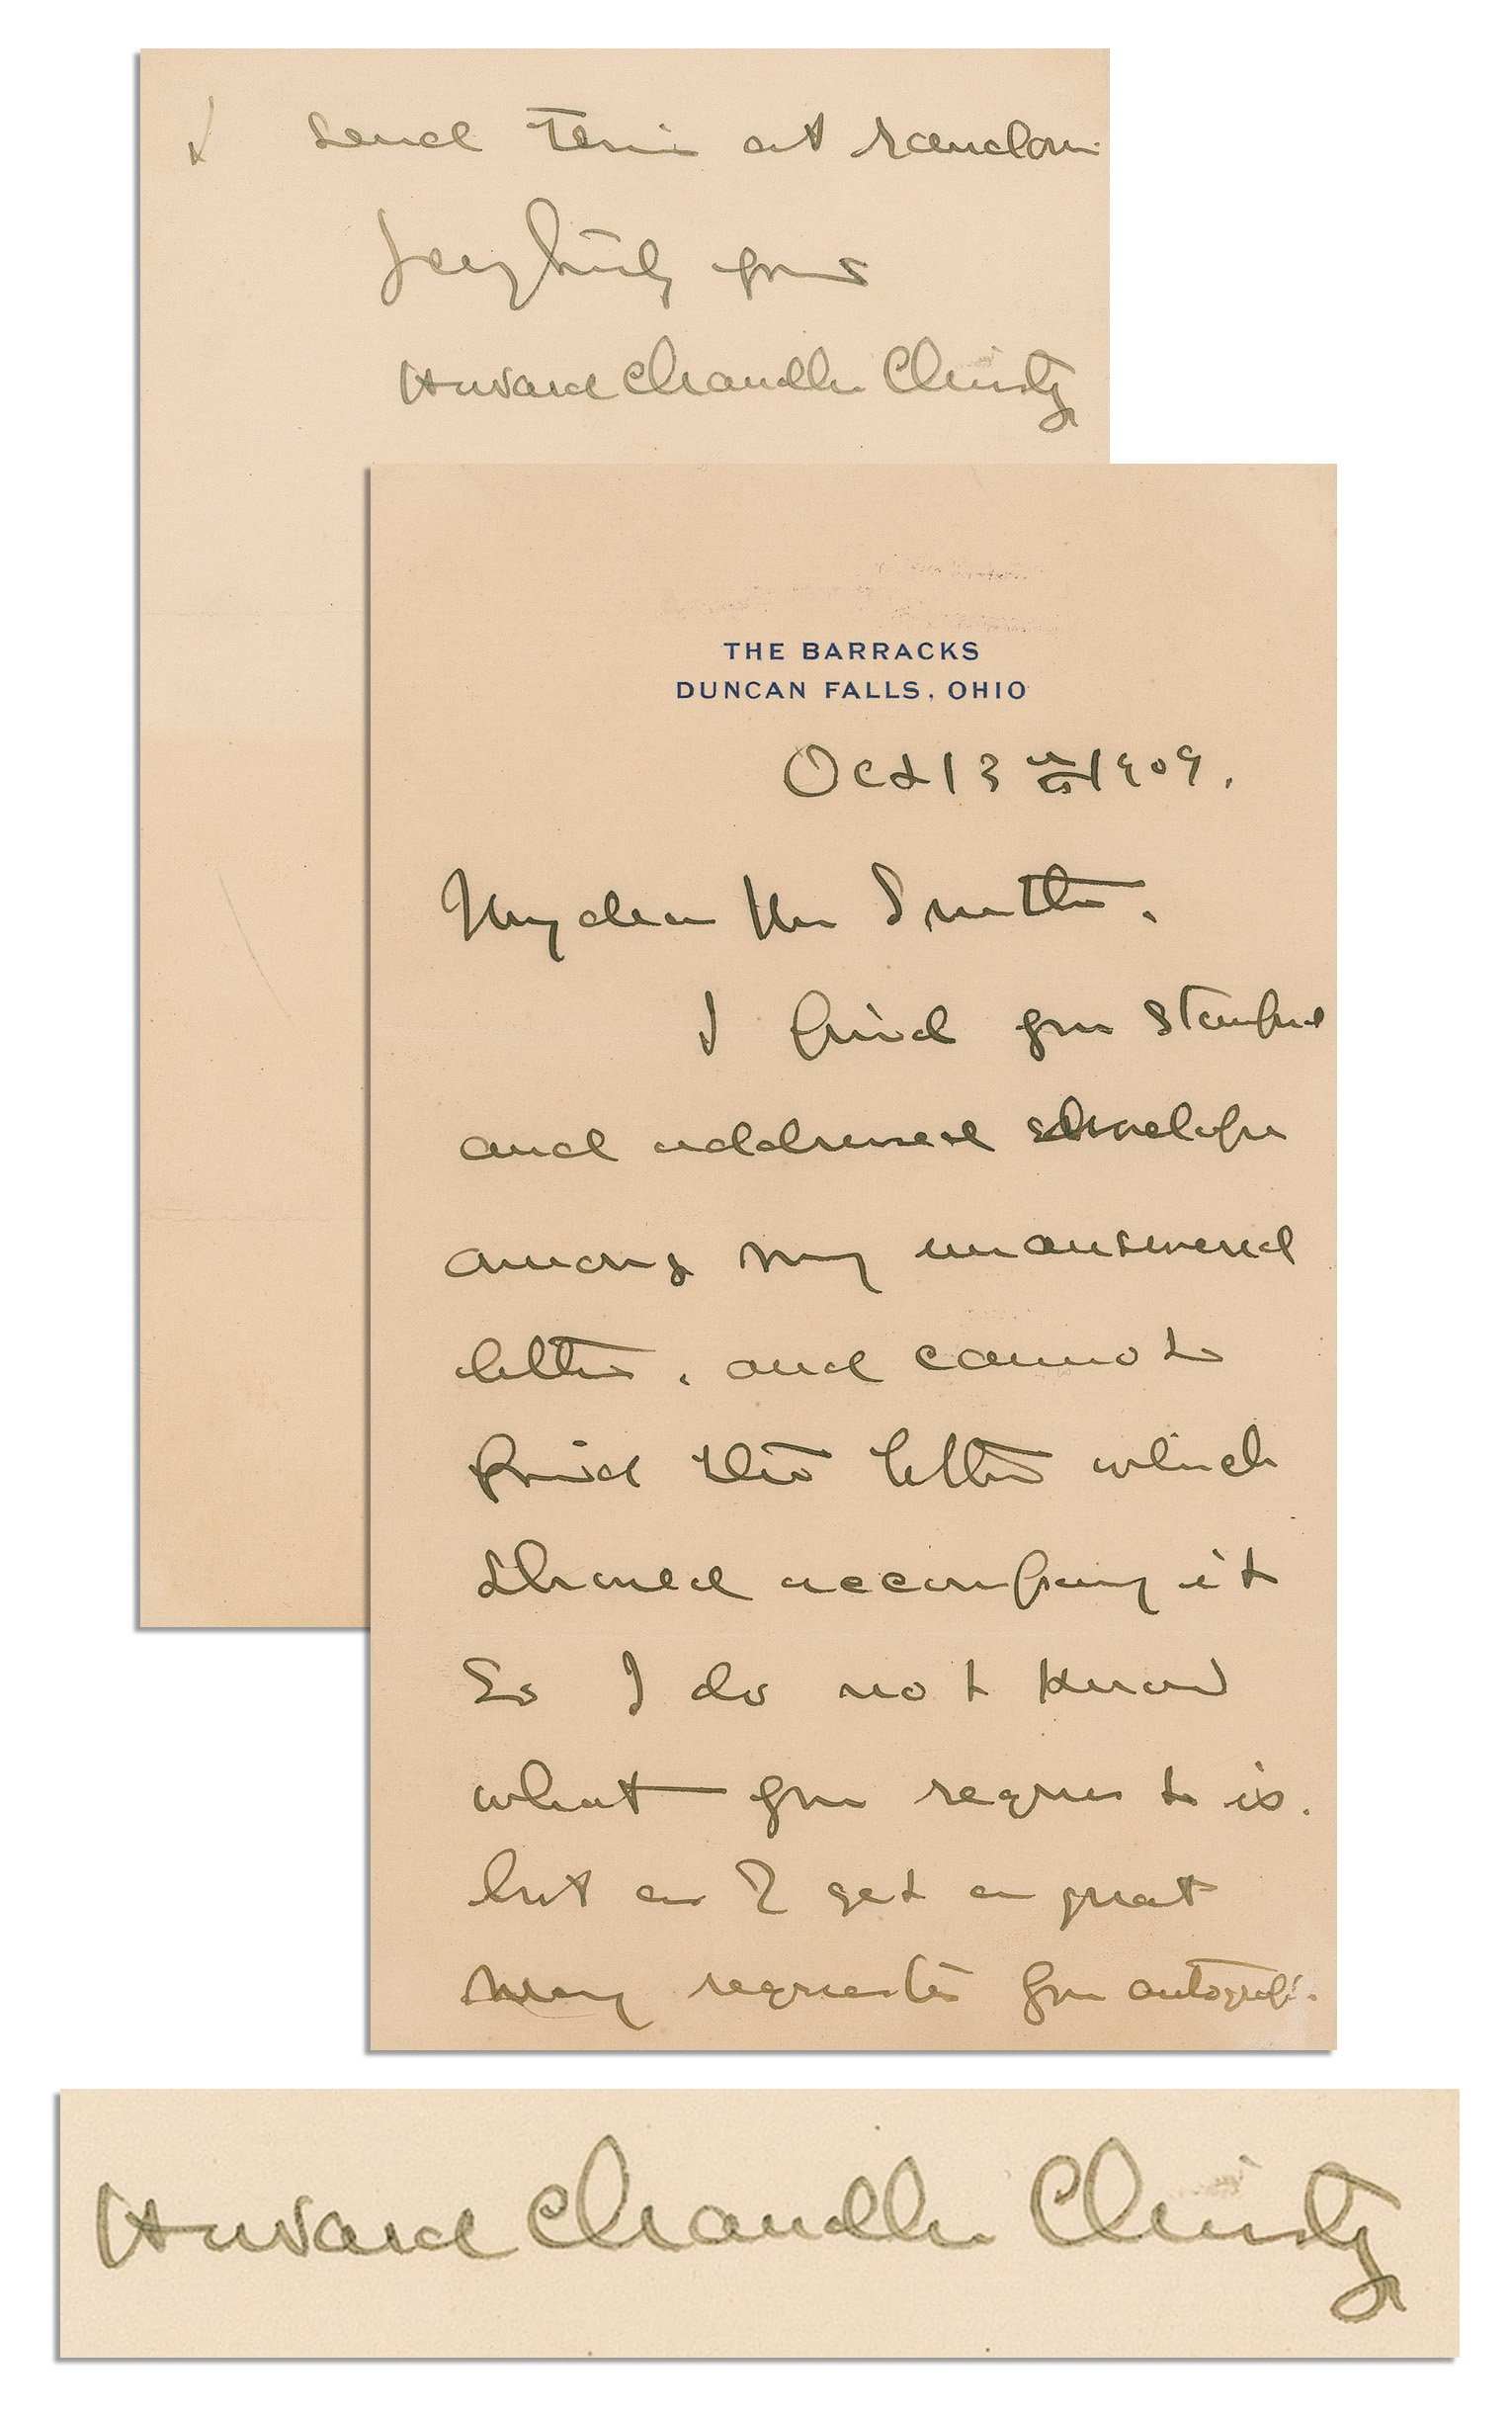 THE BARRACKS
DUNCAN FALLS, OHIO
Oct 13th 1909.
My dear Mr
I find your stamped
and addressed envelope
among my unanswered
letters, and cannot
find the letter which
should accompany it
So I do not know
what your request is.
but as I get a great
many requests for autographs.
I send this at random
Very truly yours
Howard Chandler Christy
Howard Chandler Christy